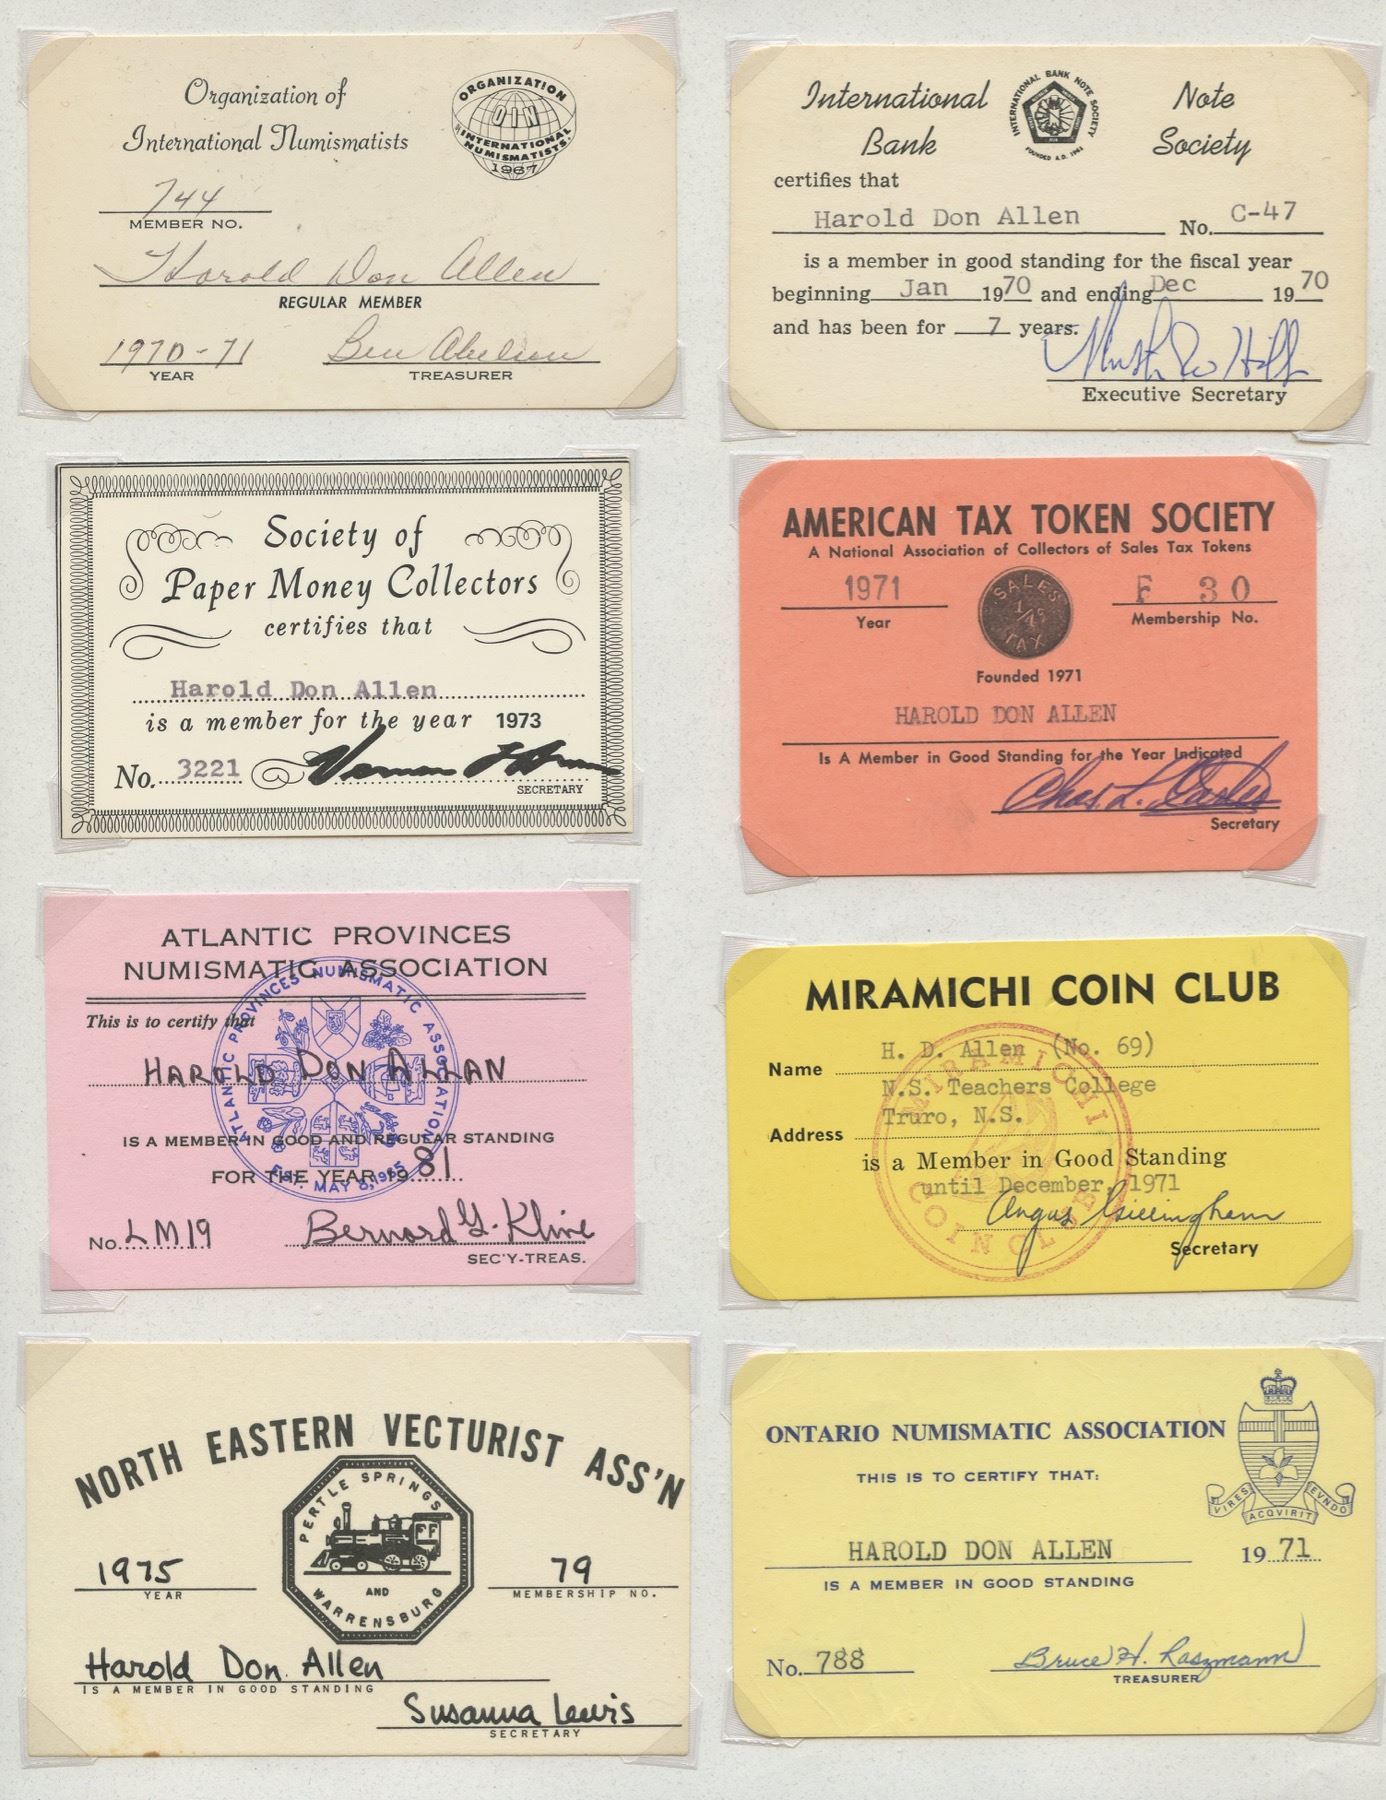 Organization of
International Numismatists
ORGANIZATION
OIN
INTERNATIONAL
NUMISMATISTS
1967
744
MEMBER NO.
Harold Don Allen
REGULAR MEMBER
1970-71
YEAR
Ben Abelson
TREASURER
International Bank
Note Society
INTERNATIONAL BANK NOTE SOCIETY
FOUNDED A.D. 1961
certifies that
Harold Don Allen No. C-47
is a member in good standing for the fiscal year
beginning Jan 1970 and ending Dec 1970
and has been for 7 years.
Executive Secretary
Society of
Paper Money Collectors
certifies that
Harold Don Allen
is a member for the year 1973
No. 3221
SECRETARY
AMERICAN TAX TOKEN SOCIETY
A National Association of Collectors of Sales Tax Tokens
1971
Year
SALES
1/4¢
TAX
F 30
Membership No.
Founded 1971
HAROLD DON ALLEN
Is A Member in Good Standing for the Year Indicated
Chas. L.
Secretary
ATLANTIC PROVINCES
NUMISMATIC ASSOCIATION
ATLANTIC PROVINCES NUMISMATIC ASSOCIATION
EST. MAY 8, 1965
This is to certify that
HAROLD DON ALLAN
IS A MEMBER IN GOOD AND REGULAR STANDING
FOR THE YEAR 1981
No. LM19 Bernard G. Kline
SEC'Y-TREAS.
MIRAMICHI COIN CLUB
Name H. D. Allen (No. 69)
N.S. Teachers College
Truro, N.S.
Address
is a Member in Good Standing
until December, 1971
MIRAMICHI
COIN CLUB
Angus Gillingham
Secretary
NORTH EASTERN VECTURIST ASS'N
PERTLE SPRINGS
AND
WARRENSBURG
1975
YEAR
79
MEMBERSHIP NO.
Harold Don Allen
IS A MEMBER IN GOOD STANDING
Susanna Lewis
SECRETARY
ONTARIO NUMISMATIC ASSOCIATION
VIRES ACQVIRIT EVNDO
THIS IS TO CERTIFY THAT:
HAROLD DON ALLEN 1971
IS A MEMBER IN GOOD STANDING
No. 788 Bruce H. Raszmann
TREASURER